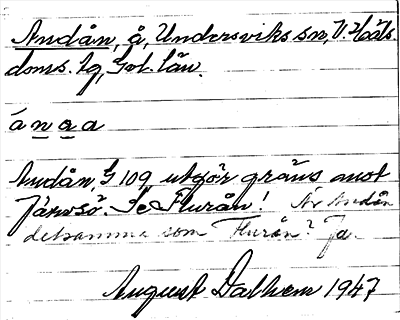 Andån, å, Undersviks sn, V. Häls.
doms. tg, Gvl. län.
ánaa
Andån, G 109, utgör gräns mot
Järvsö. Se Flurån! Är Andån
detsamma som Flurån? Ja.
August Dalhem 1947